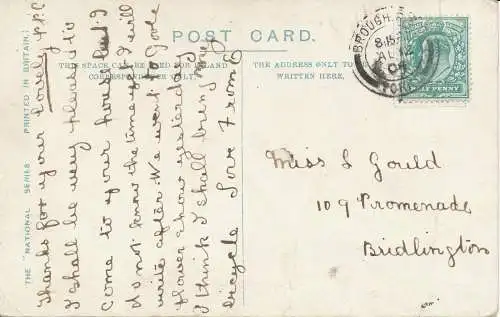 POST CARD.
THIS SPACE CAN BE USED FOR INLAND
CORRESPONDENCE ONLY.
THE ADDRESS ONLY TO BE
WRITTEN HERE.
THE "NATIONAL" SERIES PRINTED IN BRITAIN.
Thanks for your lovely P.P.C
I shall be very pleased to
come to your house but I
do not know the time yet I will
write after. We went to Goole
flower show yesterday
I think I shall bring my
bicycle Love from
BROUGH
04
HALF PENNY
Miss L Gould
109 Promenade
Bridlington